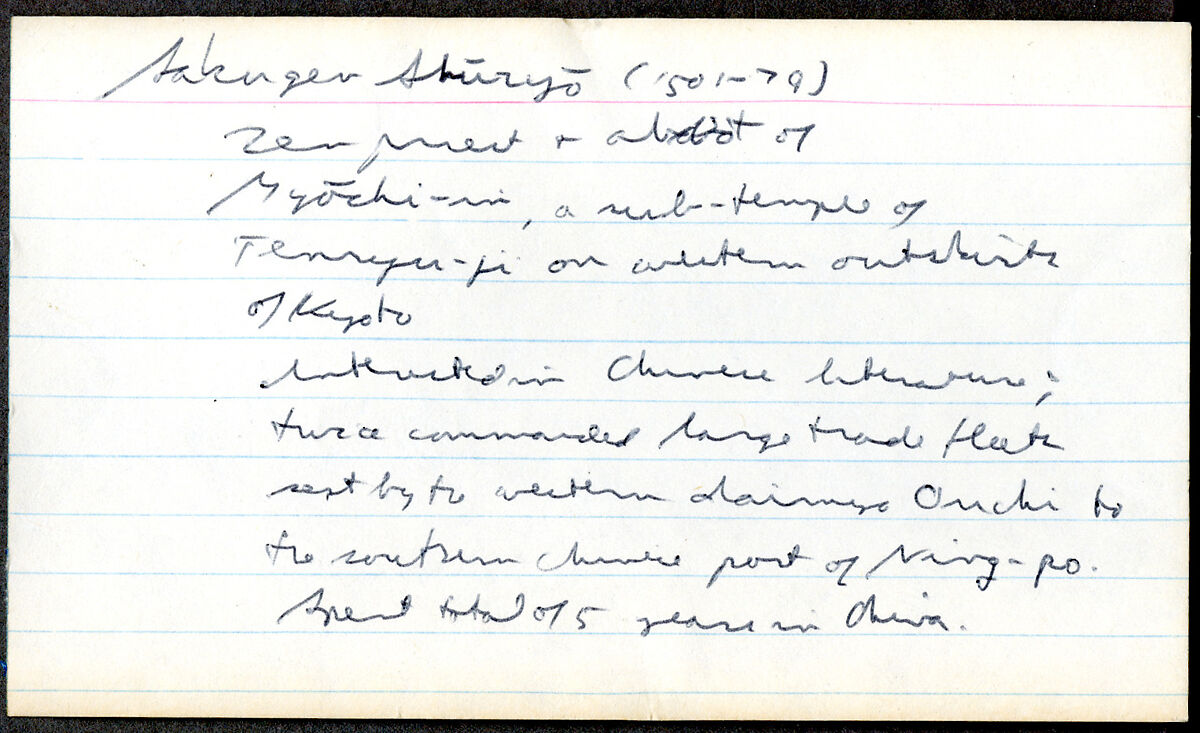 Sakugen Shūryō (1501-79)
Zen priest + abbot of
Myōchi-in, a sub-temple of
Tenryu-ji on western outskirts
of Kyoto
Interested in Chinese literature;
twice commanded large trade fleets
sent by the western daimyo Ouchi to
the southern Chinese port of Ning-po.
Spent total of 5 years in China.